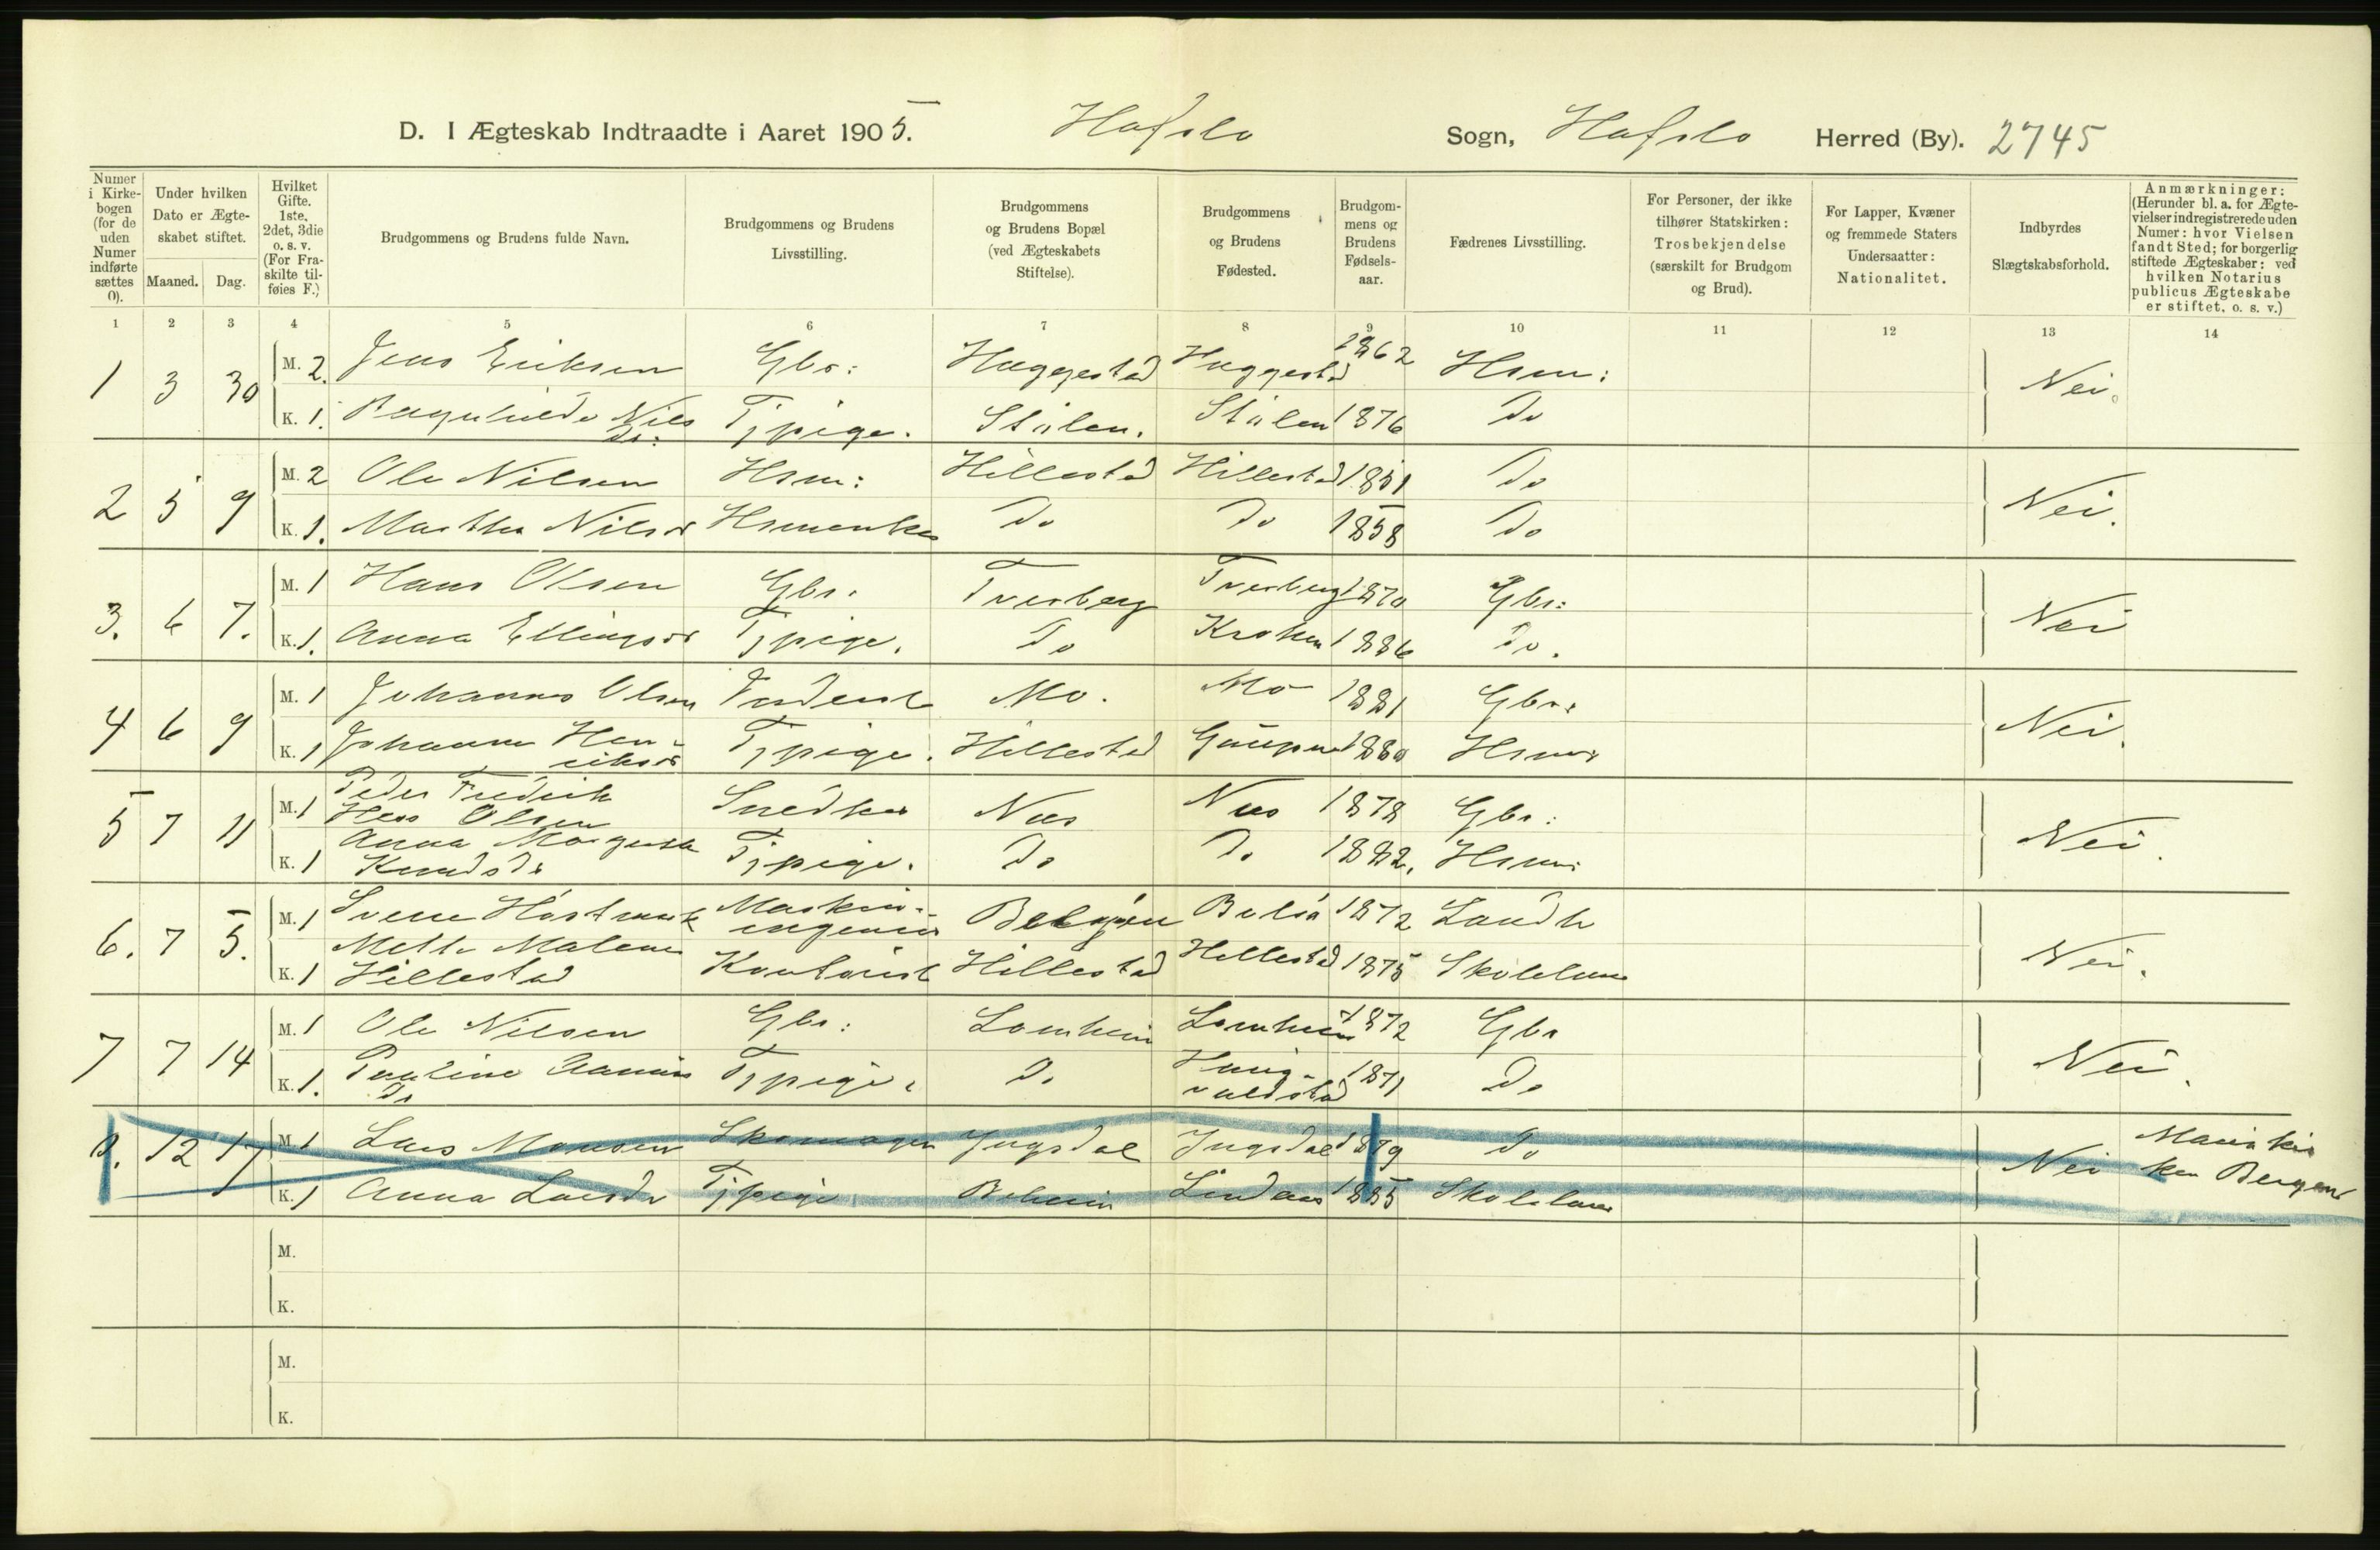 D. I Ægteskab Indtraadte i Aaret 1905. Hafslo Sogn, Hafslo Herred (By). 2745
Numer i Kirkebogen (for de uden Numer indførte sættes 0).
Under hvilken Dato er Ægteskabet stiftet.
Maaned. Dag.
Hvilket Gifte. 1ste, 2det, 3die o. s. v. (For Fraskilte tilføies F.)
Brudgommens og Brudens fulde Navn.
Brudgommens og Brudens Livsstilling.
Brudgommens og Brudens Bopæl (ved Ægteskabets Stiftelse).
Brudgommens og Brudens Fødested.
Brudgommens og Brudens Fødselsaar.
Fædrenes Livsstilling.
For Personer, der ikke tilhører Statskirken: Trosbekjendelse (særskilt for Brudgom og Brud).
For Lapper, Kvæner og fremmede Staters Undersaatter: Nationalitet.
Indbyrdes Slægtskabsforhold.
Anmærkninger: (Herunder bl. a. for Ægtevielser indregistrerede uden Numer: hvor Vielsen fandt Sted; for borgerlig stiftede Ægteskaber: ved hvilken Notarius publicus Ægteskabe er stiftet, o. s. v.)
1 2 3 4 5 6 7 8 9 10 11 12 13 14
1 3 30 M. 2. Jens Eriksen Gbr: Huggestad Huggestad 1862 Hsm: Nei.
K. 1. Ragnhilda Nilsdr: Tjpige. Stølen. Stølen 1876 Do
2 5 9 M. 2 Ole Nilsen Hsm: Hillestad Hillestad 1851 Do Nei.
K. 1. Martha Nilsdr Hsmenke Do Do 1858 Do
3. 6 7. M. 1 Hans Olsen Gbr. Tverberg Tverberg 1870 Gbr: Nei
K. 1. Anna Ellingsdr Tjpige. Do Kroken 1886 Do.
4 6 9 M. 1 Johannes Olsen Student Mo. Mo 1881 Gbr: Nei.
K. 1 Johanne Henriksdr Tjpige. Hillestad Gaupne 1880 Hsm:
5 7 11 M. 1 Peder Fredrik Hess Olsen Snedker Nes Nes 1878 Gbr: Nei.
K. 1 Anna Margreta Knudsdr Tjpige. Do Do 1882. Hsm:
6. 7 5. M. 1 Sverre Hartmark Maskiningeniør Bergen 1872 Landh Nei.
K. 1 Mette Malene Hillestad Kontorist Hillestad Hillestad 1875 Skolelærer
7 7 14 M. 1 Ole Nilsen Gbr: Lomheim Lomheim 1872 Gbr Nei.
K. 1. Pauline Aamunds Dr Tjpige. Do Hungvaldstad 1871 Do
0. 12 17 M. 1 Lars Monsen Skomager Jngsdal Jngsdal 1879 Do Nei Mariakirken Bergen
K. 1 Anna Larsdr Tjpige Beheim Lindaas 1885 Skolelærer
M.
K.
M.
K.